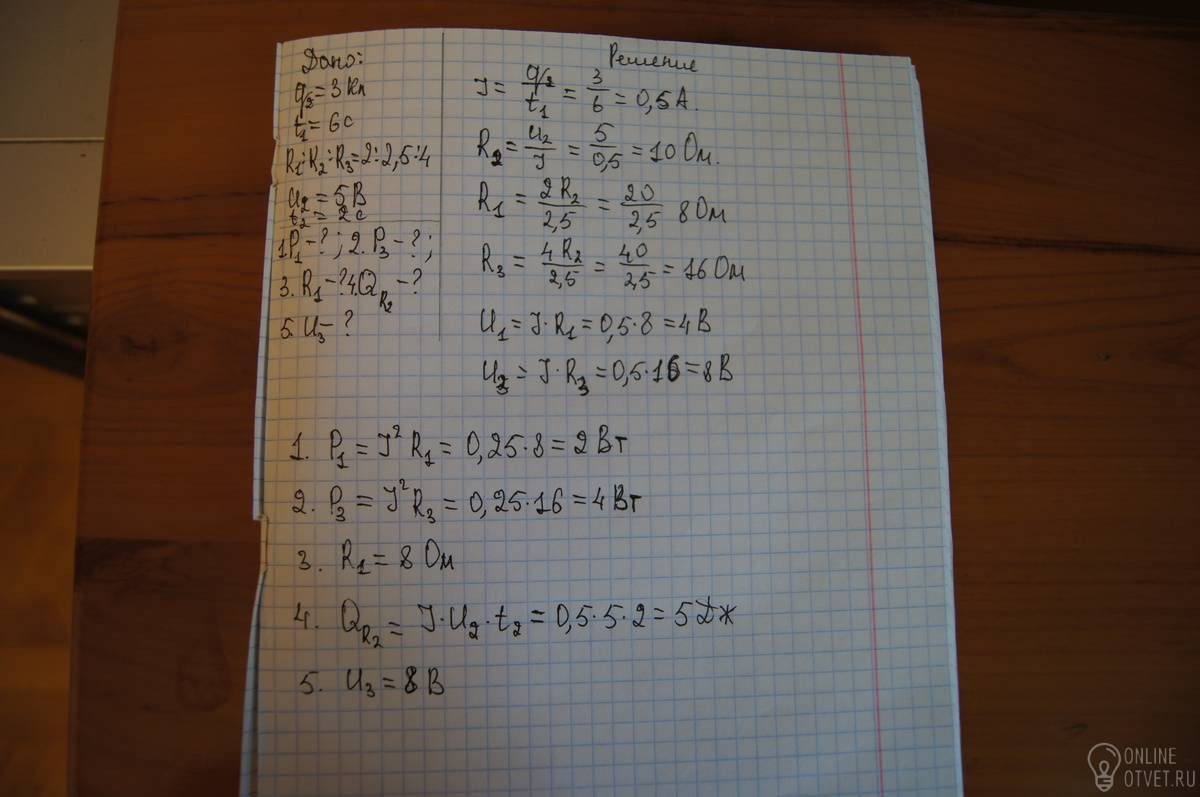 Дано:
q₃ = 3 Кл
t₁ = 6 с
R₁:R₂:R₃ = 2:2,5:4
U₂ = 5 В
t₂ = 2 с
1. P₁ - ?; 2. P₃ - ?;
3. R₁ - ? 4. Q_R₂ - ?
5. U₃ - ?
Решение
I = q₃/t₁ = 3/6 = 0,5 А.
R₂ = U₂/I = 5/0,5 = 10 Ом.
R₁ = 2R₂/2,5 = 20/2,5 8 Ом
R₃ = 4R₂/2,5 = 40/2,5 = 16 Ом
U₁ = I · R₁ = 0,5 · 8 = 4 В
U₃ = I · R₃ = 0,5 · 16 = 8 В
1. P₁ = I² R₁ = 0,25 · 8 = 2 Вт
2. P₃ = I² R₃ = 0,25 · 16 = 4 Вт
3. R₁ = 8 Ом
4. Q_R₂ = I · U₂ · t₂ = 0,5 · 5 · 2 = 5 Дж
5. U₃ = 8 В
ONLINE
OTVET.RU